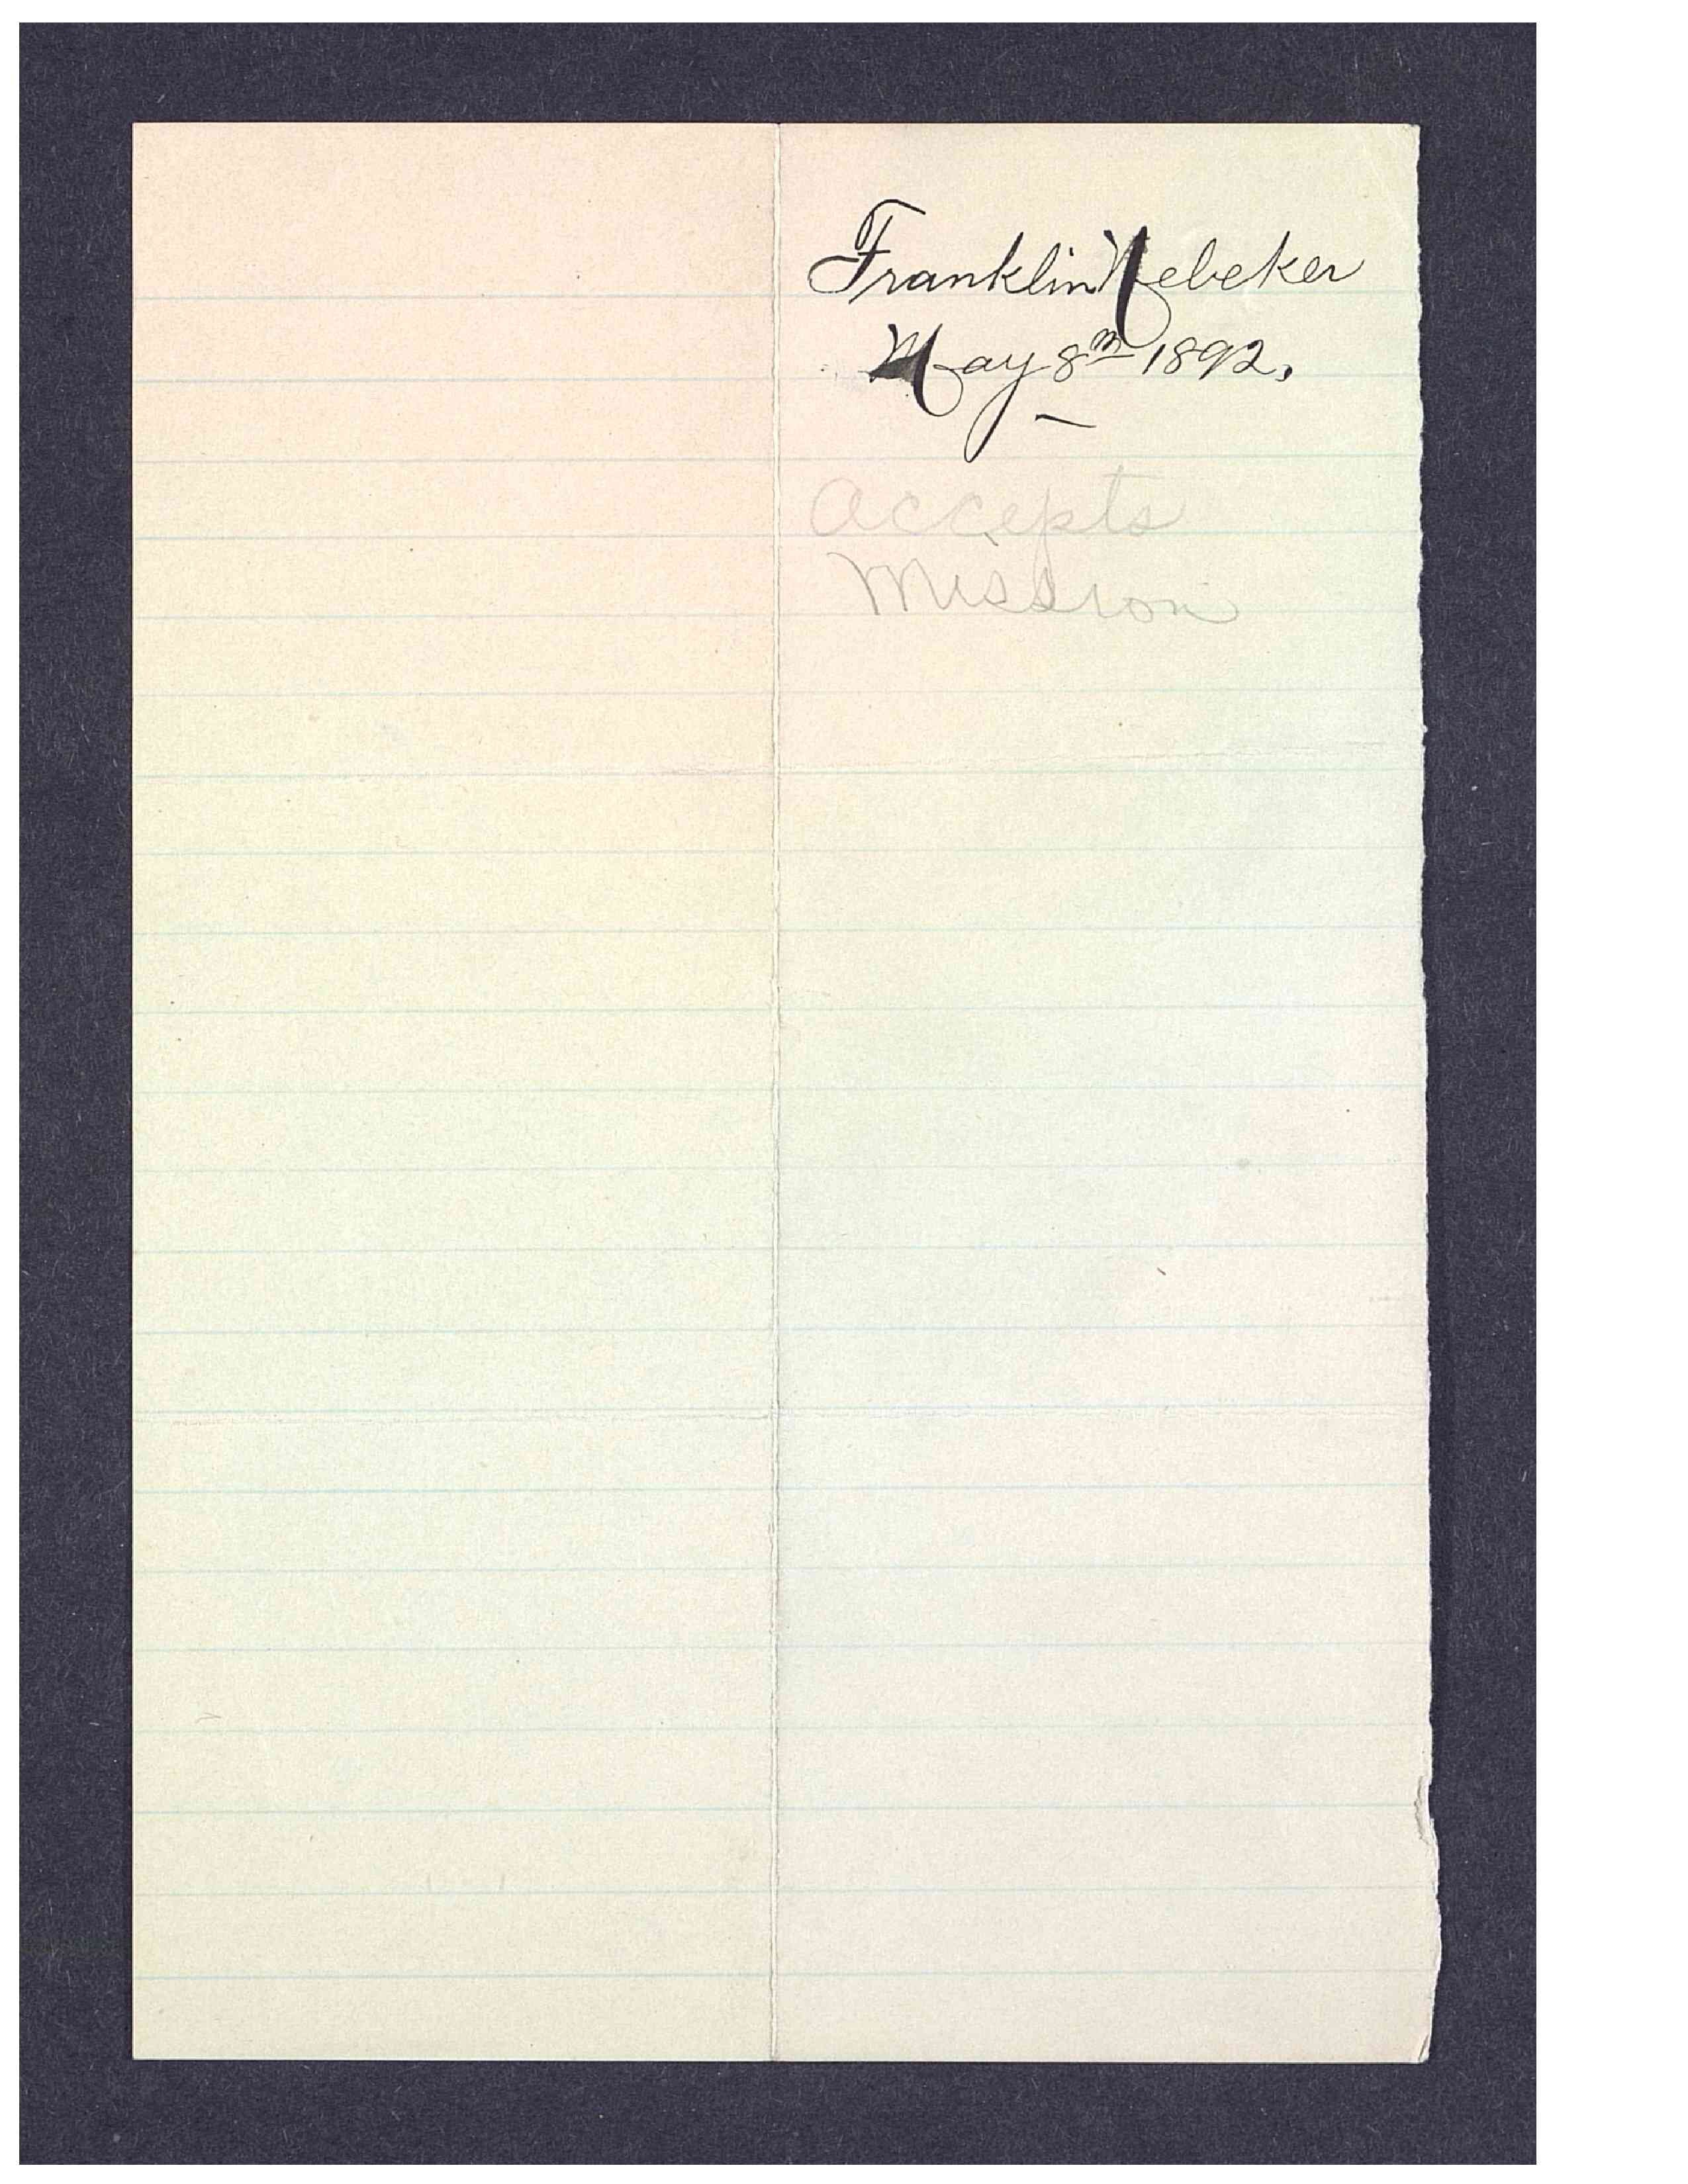 Franklin Nebeker
May 8th 1892.
accepts
Mission